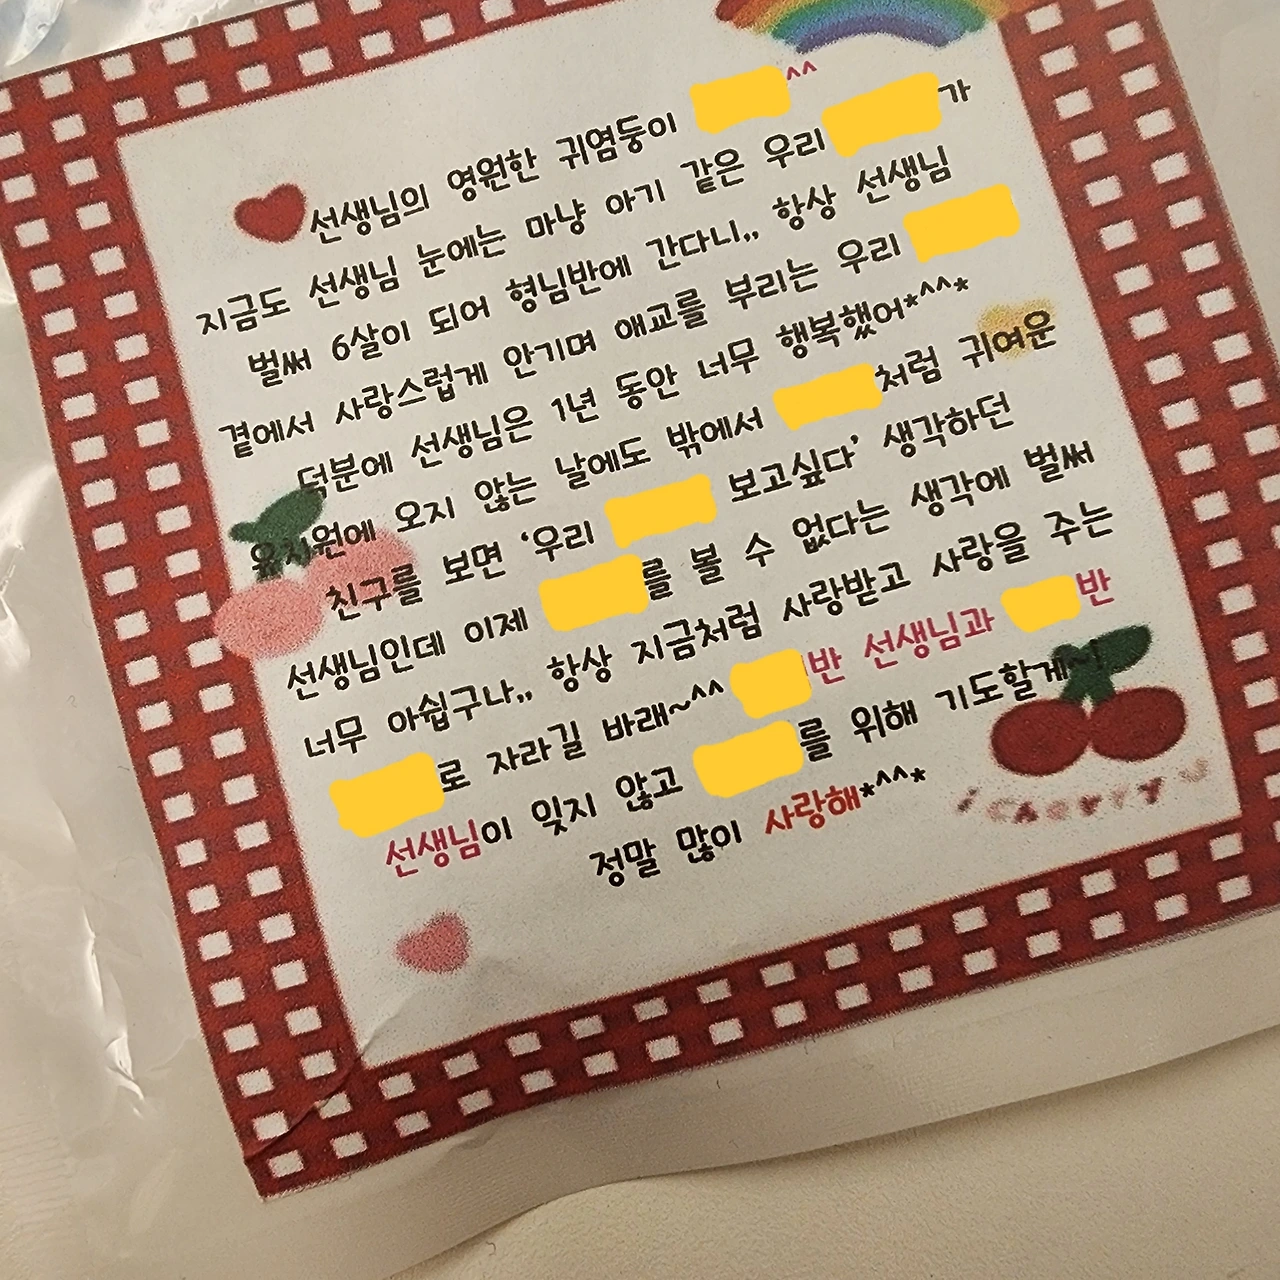 선생님의 영원한 귀염둥이 ^^
지금도 선생님 눈에는 마냥 아기 같은 우리 가
벌써 6살이 되어 형님반에 간다니,, 항상 선생님
곁에서 사랑스럽게 안기며 애교를 부리는 우리
덕분에 선생님은 1년 동안 너무 행복했어*^^*
유치원에 오지 않는 날에도 밖에서 처럼 귀여운
친구를 보면 ‘우리 보고싶다’ 생각하던
선생님인데 이제 를 볼 수 없다는 생각에 벌써
너무 아쉽구나,, 항상 지금처럼 사랑받고 사랑을 주는
로 자라길 바래~^^ 반 선생님과 반
선생님이 잊지 않고 를 위해 기도할게~!
정말 많이 사랑해*^^*
cherry